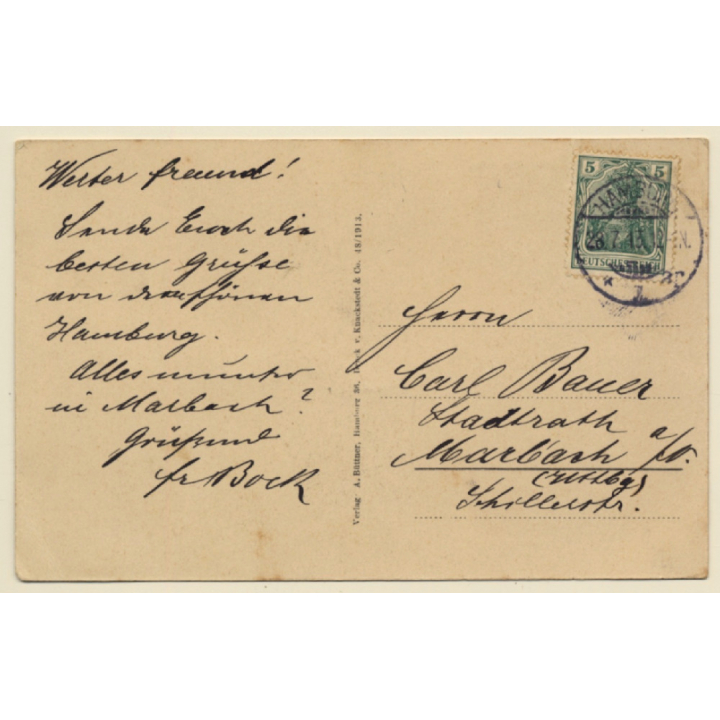 Werter Freund!
Sende Euch die
besten Grüsse
von dem schönen
Hamburg.
Alles munter
in Marbach?
Grüßend
fr Bock
Verlag A. Büttner, Hamburg 36. Druck v. Knackstedt & Co. 48/1913.
5 5
DEUTSCHES REICH
HAMBURG
26.7.13. N.
* 1
Herrn
Carl Bauer
Stadtrath
Marbach a/N.
(Wttbg)
Schillerstr.